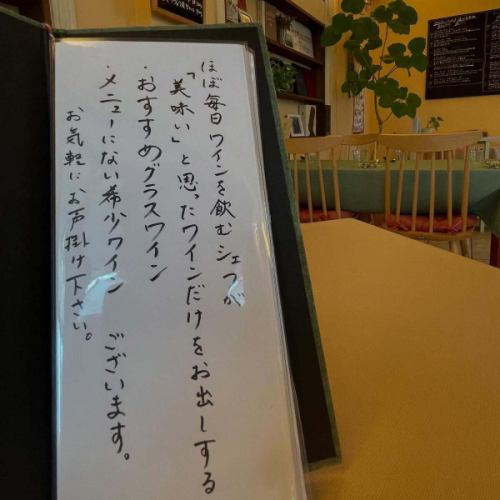 ほぼ毎日ワインを飲むシェフが
「美味い」と思ったワインだけをお出しする
・おすすめグラスワイン
・メニューにない希少ワイン　ございます。
お気軽にお声掛け下さい。